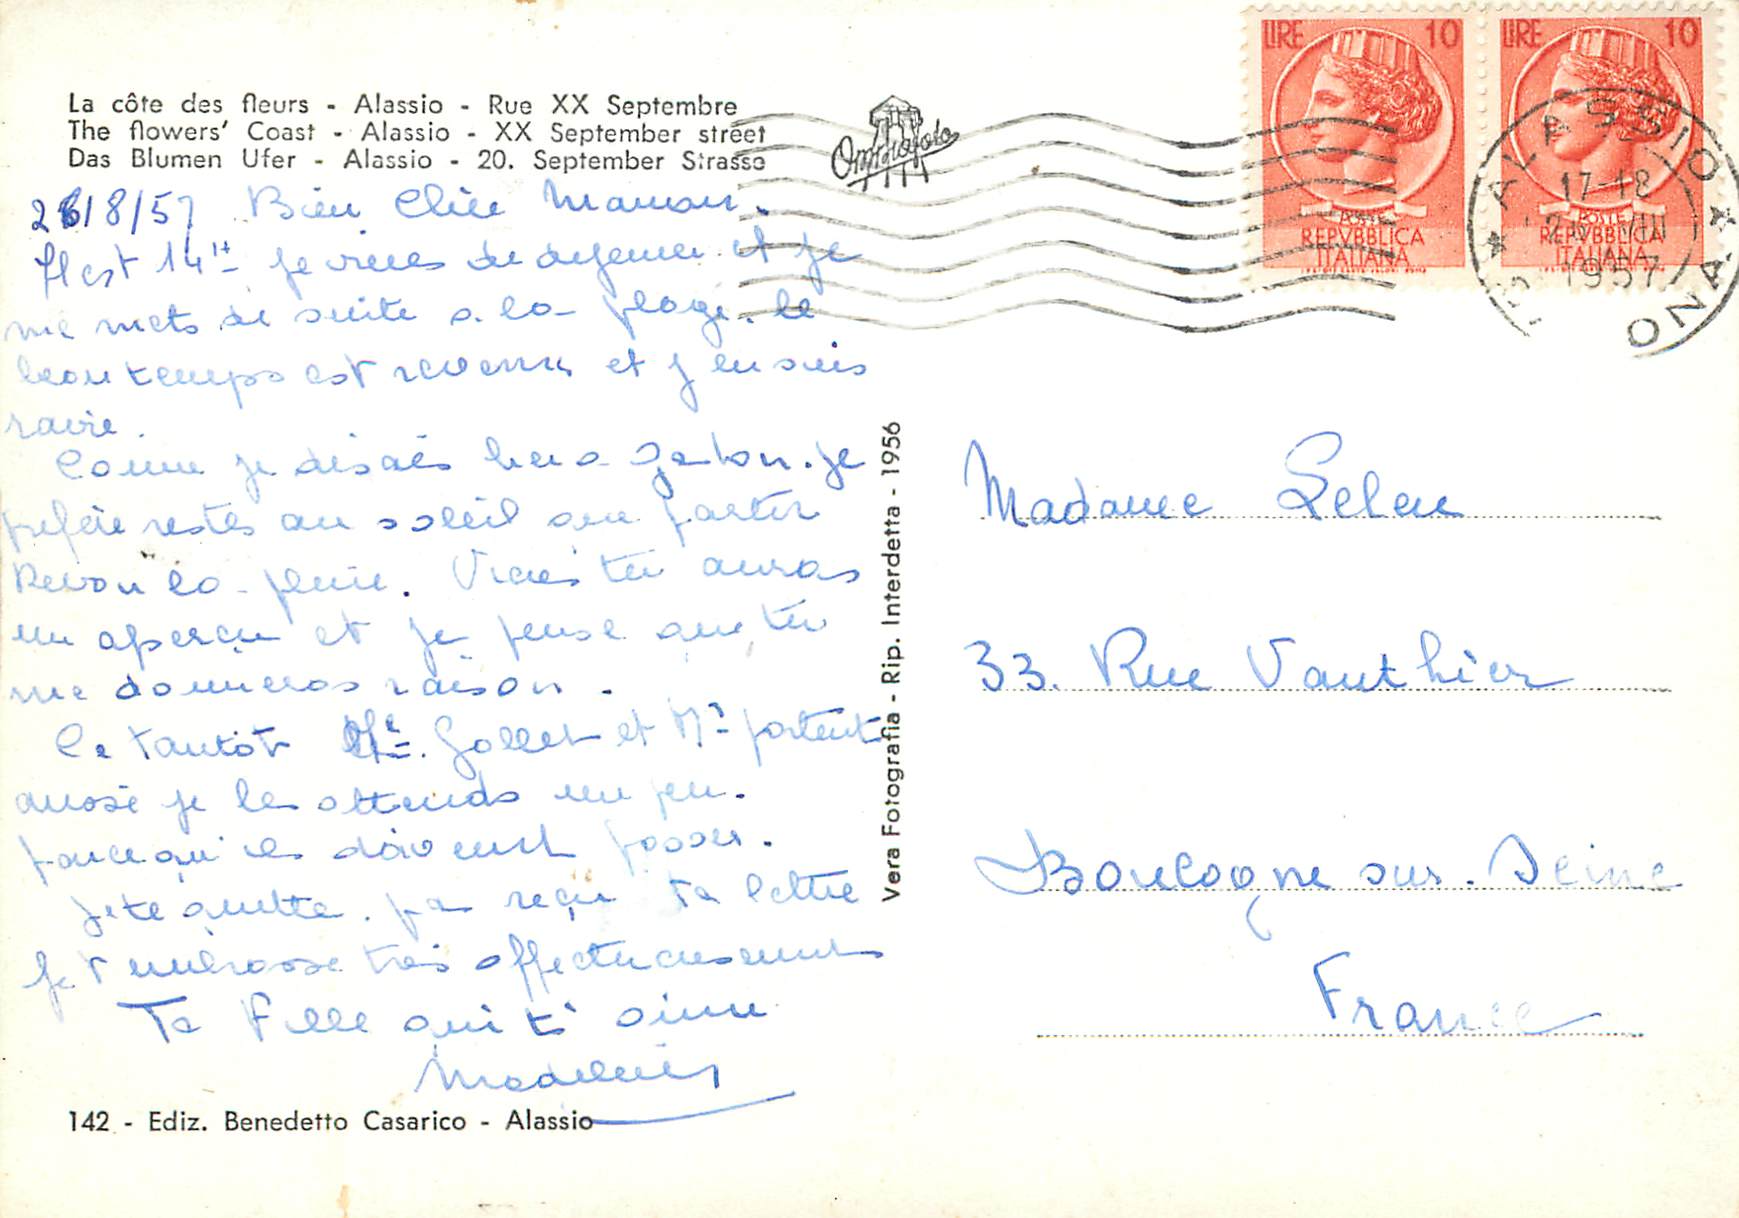 La côte des fleurs - Alassio - Rue XX Septembre
The flowers' Coast - Alassio - XX September street
Das Blumen Ufer - Alassio - 20. September Strasse
Omniafoto
LIRE 10
POSTE
REPVBBLICA
ITALIANA
LIRE 10
POSTE
REPVBBLICA
ITALIANA
ALASSIO
17-18
VIII
1957
26/8/57 Bien Chère Maman.
Il est 14h je viens de déjeuner et je
me mets de suite à la plage. le
beau temps est revenu et j'en suis
ravie.
Comme je disais hier à Gaston. je
préfère rester au soleil que partir
Revoir la pluie. Vicas tu auras
un aperçu et je pense que tu
me donneras raison.
Ce tantôt Me. Gollet et Mr partent
aussi je les attends un peu.
parce qu'ils doivent passer.
je te quitte. pas reçu ta lettre
Je t'embrasse très affectueusement
Ta Fille qui t'aime
Madeleine
Madame Leleu
33. Rue Vauthier
Boulogne sur. Seine
France
Vera Fotografia - Rip. Interdetta - 1956
142 - Ediz. Benedetto Casarico - Alassio